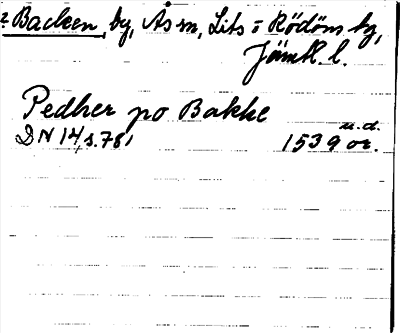 2. Backen, by, Ås sn, Lits o Rödöns tg,
Jämtl. l.
Pedher po Bakke
u.d.
DN 14, s. 781 1539 or.